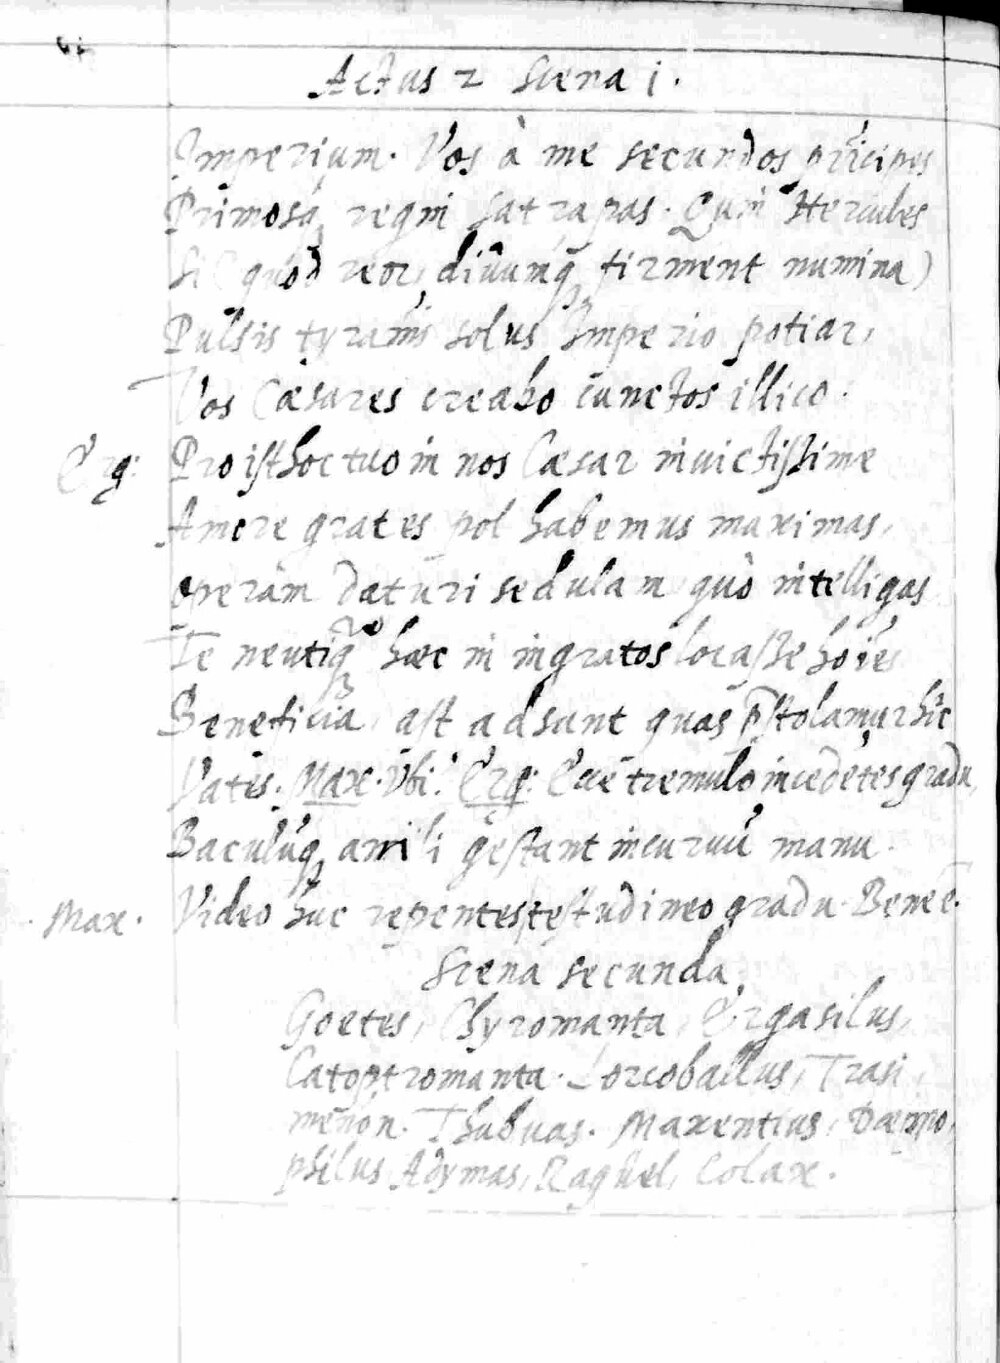 Actus 2 Scena i.
Imperium. Vos à me secundos prīcipes
Primosq́ regni satrapas. Cum Hercules
Si (quod reor, diuumq́ firment numina)
Pulsis tyrānis solus Imperio potiar,
Vos Cæsares creabo cunctos illico.
Erg: Pro isthoc tuo in nos Cæsar inuictissime
Amore grates pol habemus maximas,
operam daturi sedulam quò intelligas
Te neutiq̃ hæc in ingratos locasse hoīes
Beneficia, ast adsunt quos p̄stolamur hîc
Vates. Max. Vbi? Erg: Ecce tremulo incedētes gradu
Baculūq́ anili gestant incuruū manu.
Max. Video huc repentes testudineo gradu. Bene ē.
Scena secunda.
Goetes, Chyromanta, Ergasilus,
Catoptromanta. Lorcobaulus, Trasi
menon. Thubuas. Maxentius, Dæmo
philus, Adymas, Raguel, Colax.